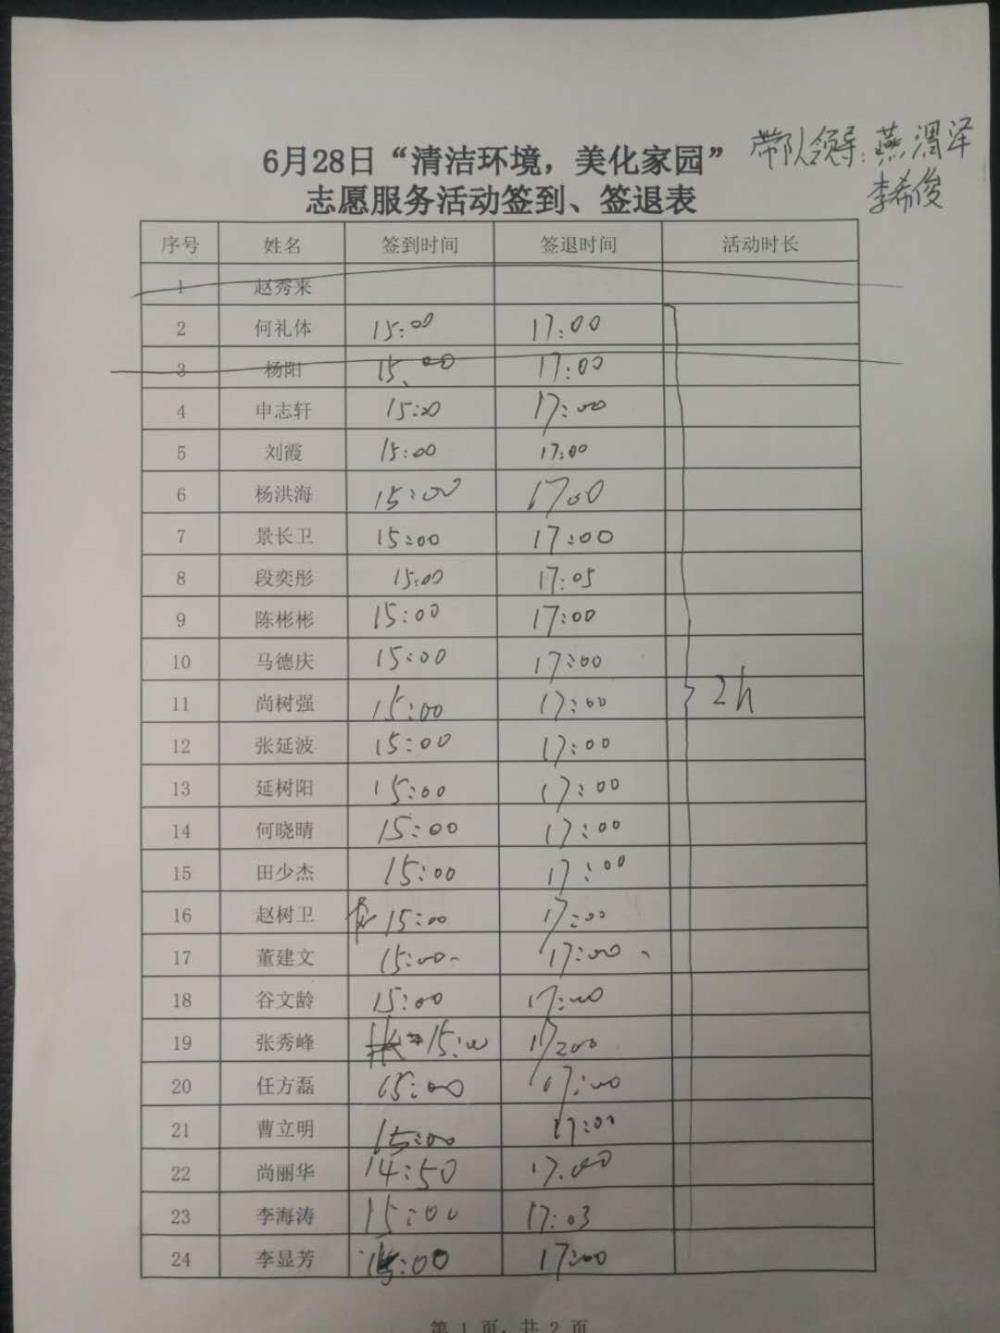 6月28日“清洁环境，美化家园” 带队领导：燕渭泽
志愿服务活动签到、签退表 李希俊
序号 姓名 签到时间 签退时间 活动时长
1 赵秀来
2 何礼体 15:00 17:00
3 杨阳 15:00 17:00
4 申志轩 15:00 17:00
5 刘霞 15:00 17:00
6 杨洪海 15:00 17:00
7 景长卫 15:00 17:00
8 段奕彤 15:00 17:05
9 陈彬彬 15:00 17:00
10 马德庆 15:00 17:00
11 尚树强 15:00 17:00 2h
12 张延波 15:00 17:00
13 延树阳 15:00 17:00
14 何晓晴 15:00 17:00
15 田少杰 15:00 17:00
16 赵树卫 15:00 17:00
17 董建文 15:00 17:00
18 谷文龄 15:00 17:00
19 张秀峰 15:00 17:00
20 任方磊 15:00 17:00
21 曹立明 15:00 17:00
22 尚丽华 14:50 17:00
23 李海涛 15:00 17:03
24 李显芳 15:00 17:00
第 1 页，共 2 页